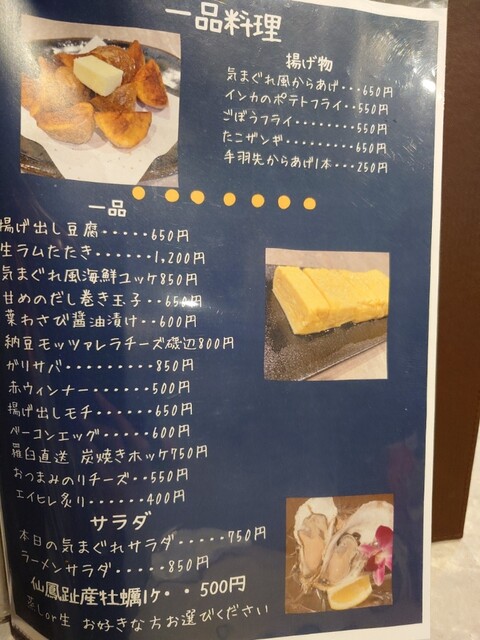 一品料理
揚げ物
気まぐれ風からあげ・・・650円
インカのポテトフライ・・・550円
ごぼうフライ・・・・・・・・550円
たこザンギ・・・・・・・・・650円
手羽先からあげ1本・・・250円
一品
揚げ出し豆腐・・・・・650円
生ラムたたき・・・・・・・1,200円
気まぐれ風海鮮ユッケ850円
甘めのだし巻き玉子・・650円
葉わさび醤油漬け・・600円
納豆モッツァレラチーズ磯辺800円
ガリサバ・・・・・・・・・850円
赤ウィンナー・・・・・・500円
揚げ出しモチ・・・・・・650円
ベーコンエッグ・・・・・600円
羅臼直送 炭焼きホッケ750円
おつまみのりチーズ・・550円
エイヒレ炙り・・・・・400円
サラダ
本日の気まぐれサラダ・・・・・750円
ラーメンサラダ・・・・・850円
仙鳳趾産牡蠣1ヶ・・500円
蒸しor生 お好きな方お選びください